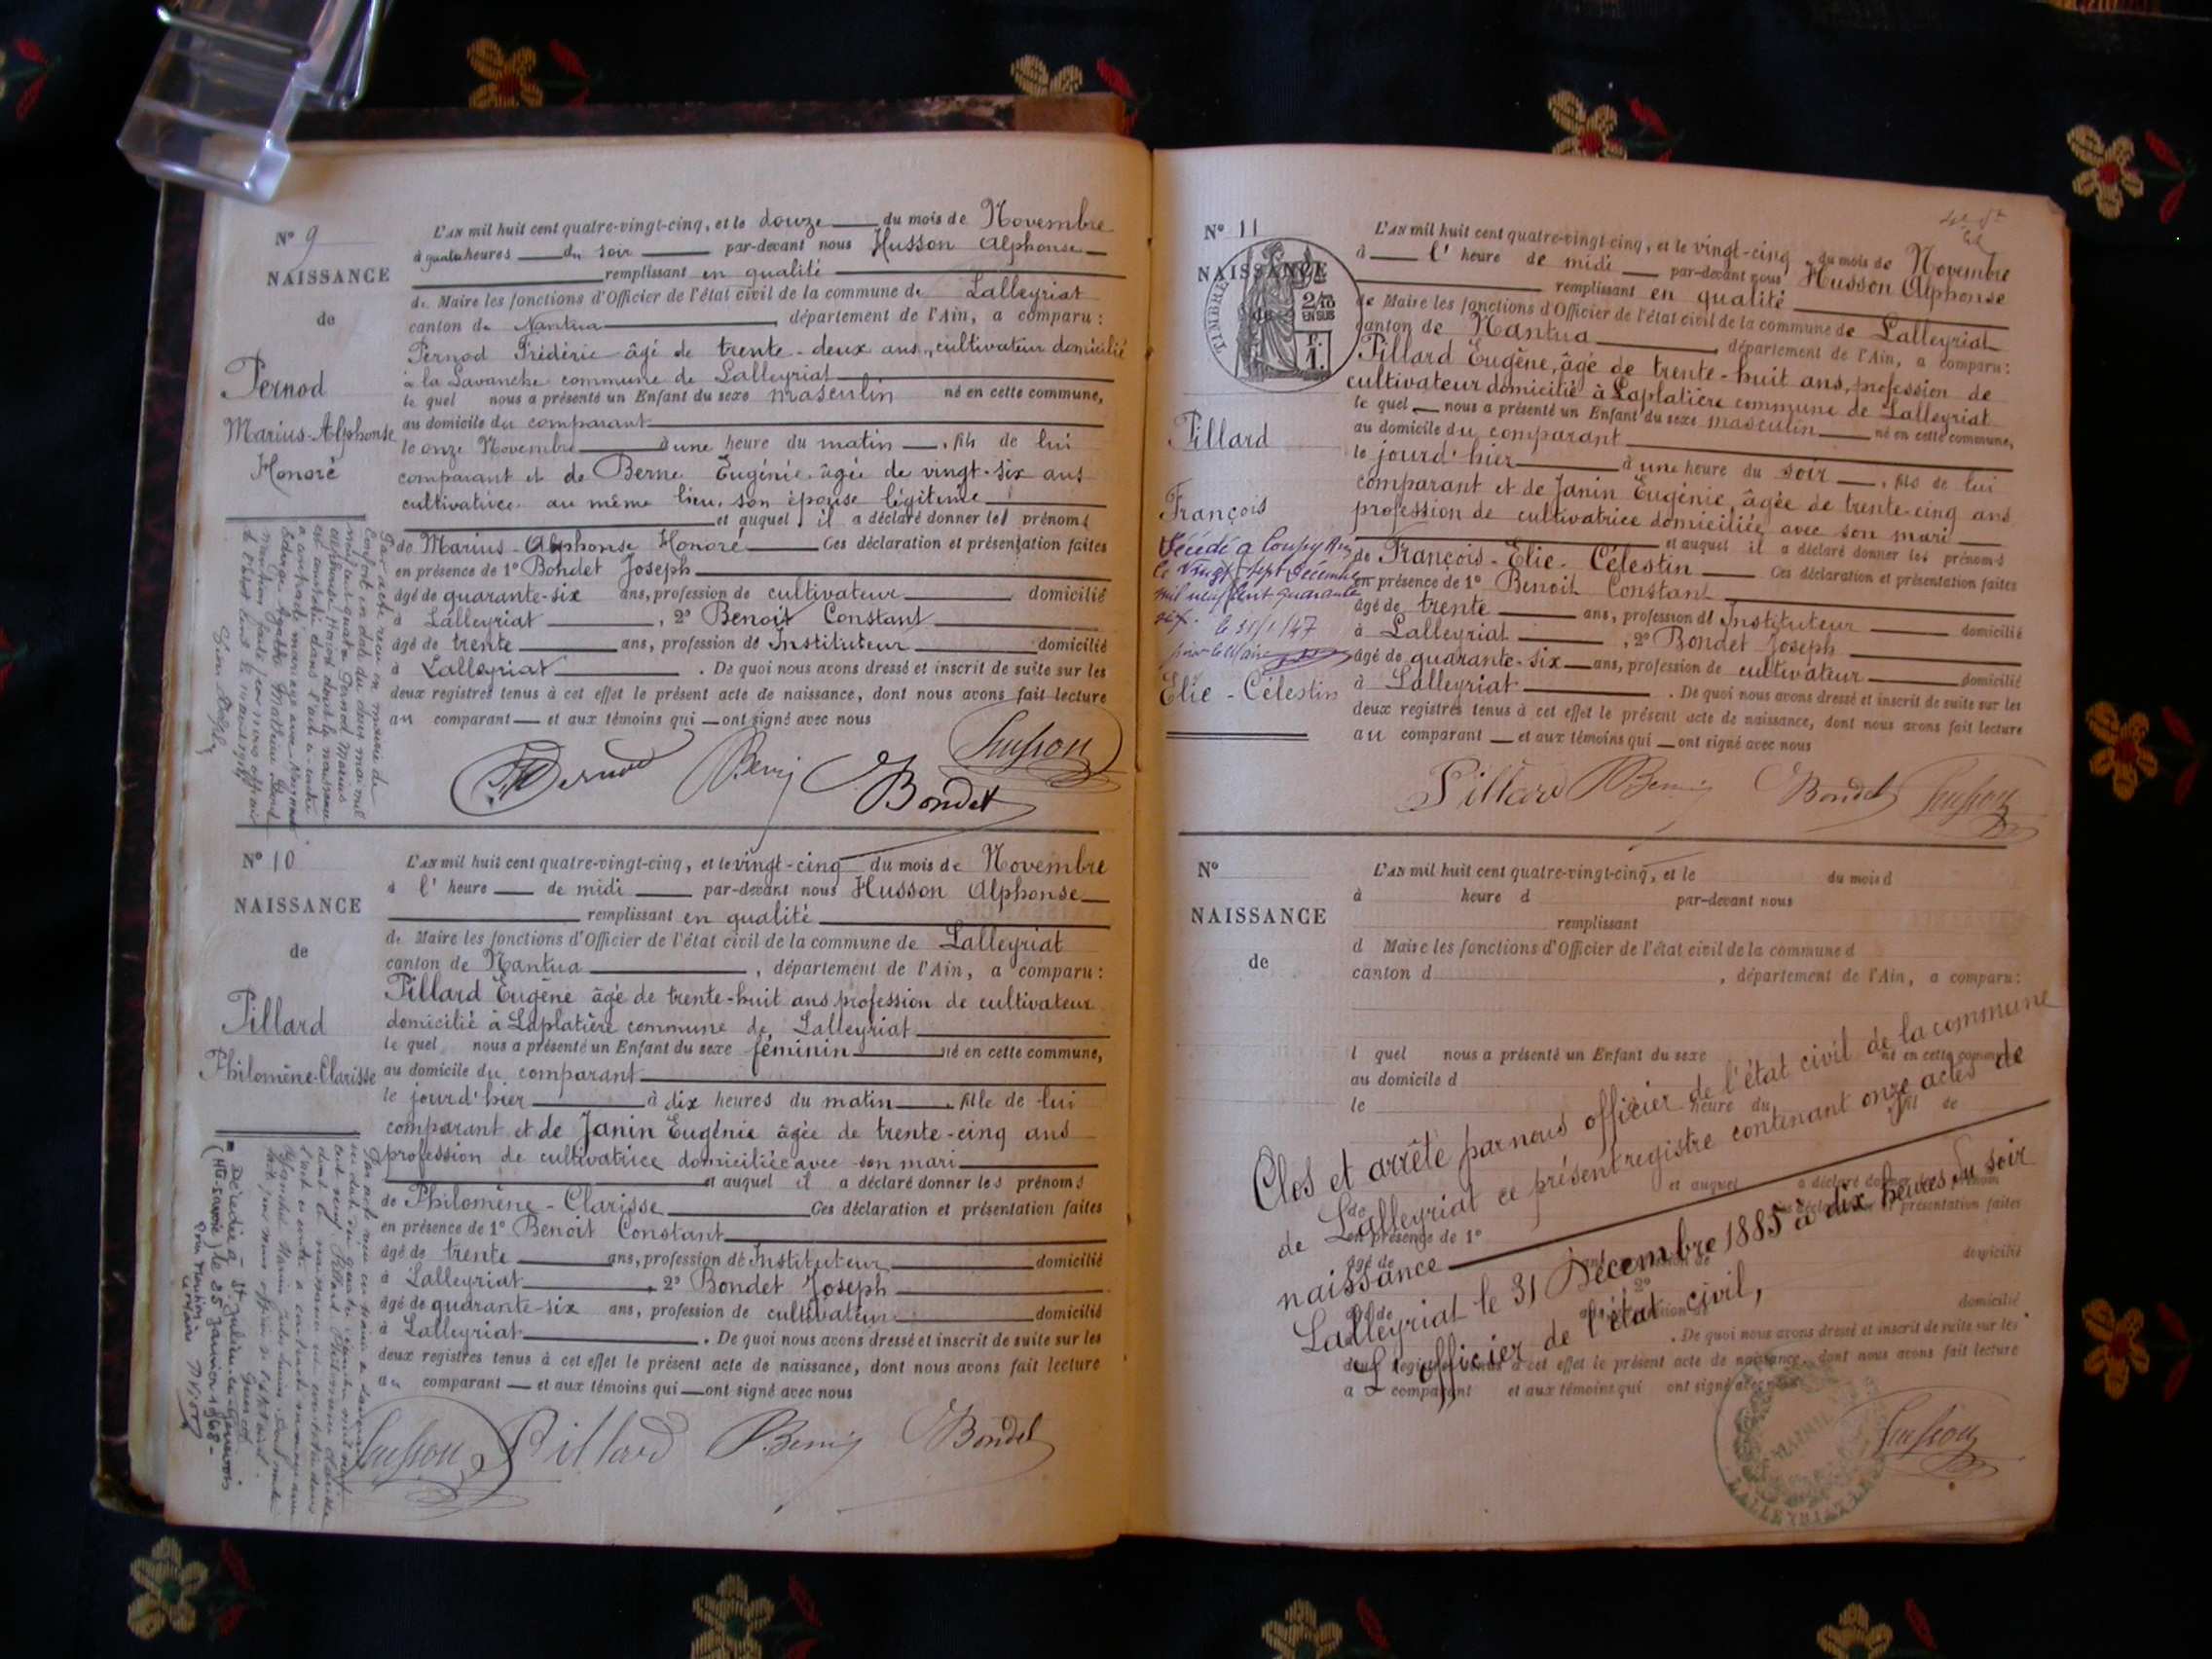 N° 9
NAISSANCE
de
Pernod
Marius-Alphonse
Honoré
L'AN mil huit cent quatre-vingt-cinq, et le douze du mois de Novembre
à quatre heures du soir par-devant nous Husson Alphonse
remplissant en qualité
de Maire les fonctions d'Officier de l'état civil de la commune de Lalleyriat
canton de Nantua, département de l'Ain, a comparu :
Pernod Frédéric âgé de trente-deux ans, cultivateur domicilié
à la Lavanche commune de Lalleyriat
le quel nous a présenté un Enfant du sexe masculin né en cette commune,
au domicile du comparant
le onze Novembre à une heure du matin, fils de lui
comparant et de Berne Eugénie âgée de vingt-six ans
cultivatrice au même lieu, son épouse légitime
et auquel il a déclaré donner les prénoms
de Marius-Alphonse Honoré Ces déclaration et présentation faites
en présence de 1° Bondet Joseph
âgé de quarante-six ans, profession de cultivateur domicilié
à Lalleyriat, 2° Benoit Constant
âgé de trente ans, profession de Instituteur domicilié
à Lalleyriat. De quoi nous avons dressé et inscrit de suite sur les
deux registres tenus à cet effet le présent acte de naissance, dont nous avons fait lecture
au comparant et aux témoins qui ont signé avec nous
Husson
Pernod
Bondet
N° 10
NAISSANCE
de
Pillard
Philomène-Clarisse
L'AN mil huit cent quatre-vingt-cinq, et le vingt-cinq du mois de Novembre
à l' heure de midi par-devant nous Husson Alphonse
remplissant en qualité
de Maire les fonctions d'Officier de l'état civil de la commune de Lalleyriat
canton de Nantua, département de l'Ain, a comparu :
Pillard Eugène âgé de trente-huit ans profession de cultivateur
domicilié à Laplatière commune de Lalleyriat
le quel nous a présenté un Enfant du sexe féminin né en cette commune,
au domicile du comparant
le jourd'hier à dix heures du matin, fille de lui
comparant et de Janin Eugénie âgée de trente-cinq ans
profession de cultivatrice domiciliée avec son mari
et auquel il a déclaré donner les prénoms
de Philomène-Clarisse Ces déclaration et présentation faites
en présence de 1° Benoit Constant
âgé de trente ans, profession de Instituteur domicilié
à Lalleyriat, 2° Bondet Joseph
âgé de quarante-six ans, profession de cultivateur domicilié
à Lalleyriat. De quoi nous avons dressé et inscrit de suite sur les
deux registres tenus à cet effet le présent acte de naissance, dont nous avons fait lecture
au comparant et aux témoins qui ont signé avec nous
Husson Pillard Bondet
Décédée à St Julien-en-Genevois
(Hte-Savoie) le 25 janvier 1968
Pour mention
Le Maire
N° 11
NAISSANCE
de
TIMBRE
2/10
EN SUS
F.
1.
Pillard
François
Elie-Célestin
Décédé à
le Vingt sept Décembre
mil neuf cent quarante
six.
le 31/1/47
pour le Maire
L'AN mil huit cent quatre-vingt-cinq, et le vingt-cinq du mois de Novembre
à l' heure de midi par-devant nous Husson Alphonse
remplissant en qualité
de Maire les fonctions d'Officier de l'état civil de la commune de Lalleyriat
canton de Nantua, département de l'Ain, a comparu :
Pillard Eugène, âgé de trente-huit ans, profession de
cultivateur domicilié à Laplatière commune de Lalleyriat
le quel nous a présenté un Enfant du sexe masculin né en cette commune,
au domicile du comparant
le jourd'hier à une heure du soir, fils de lui
comparant et de Janin Eugénie âgée de trente-cinq ans
profession de cultivatrice domiciliée avec son mari
et auquel il a déclaré donner les prénoms
de François-Elie-Célestin Ces déclaration et présentation faites
en présence de 1° Benoit Constant
âgé de trente ans, profession de Instituteur domicilié
à Lalleyriat, 2° Bondet Joseph
âgé de quarante-six ans, profession de cultivateur domicilié
à Lalleyriat. De quoi nous avons dressé et inscrit de suite sur les
deux registres tenus à cet effet le présent acte de naissance, dont nous avons fait lecture
au comparant et aux témoins qui ont signé avec nous
Pillard Bondet Husson
N°
NAISSANCE
de
L'AN mil huit cent quatre-vingt-cinq, et le du mois d
à heure d par-devant nous
remplissant
d Maire les fonctions d'Officier de l'état civil de la commune d
canton d , département de l'Ain, a comparu :
l quel nous a présenté un Enfant du sexe né en cette commune
au domicile d
le heure du fil de
et auquel a déclaré donner prénom
de Ces déclaration et présentation faites
en présence de 1°
âgé de ans, profession de domicilié
2°
âgé de ans, profession d domicilié
. De quoi nous avons dressé et inscrit de suite sur les
deux registres tenus à cet effet le présent acte de naissance, dont nous avons fait lecture
a comparant et aux témoins qui ont signé avec nous
Clos et arrêté par nous officier de l'état civil de la commune
de Lalleyriat ce présent registre contenant onze actes de
naissance
Lalleyriat le 31 Décembre 1885 à dix heures du soir
L'officier de l'état civil,
Husson
MAIRIE
LALLEYRIAT